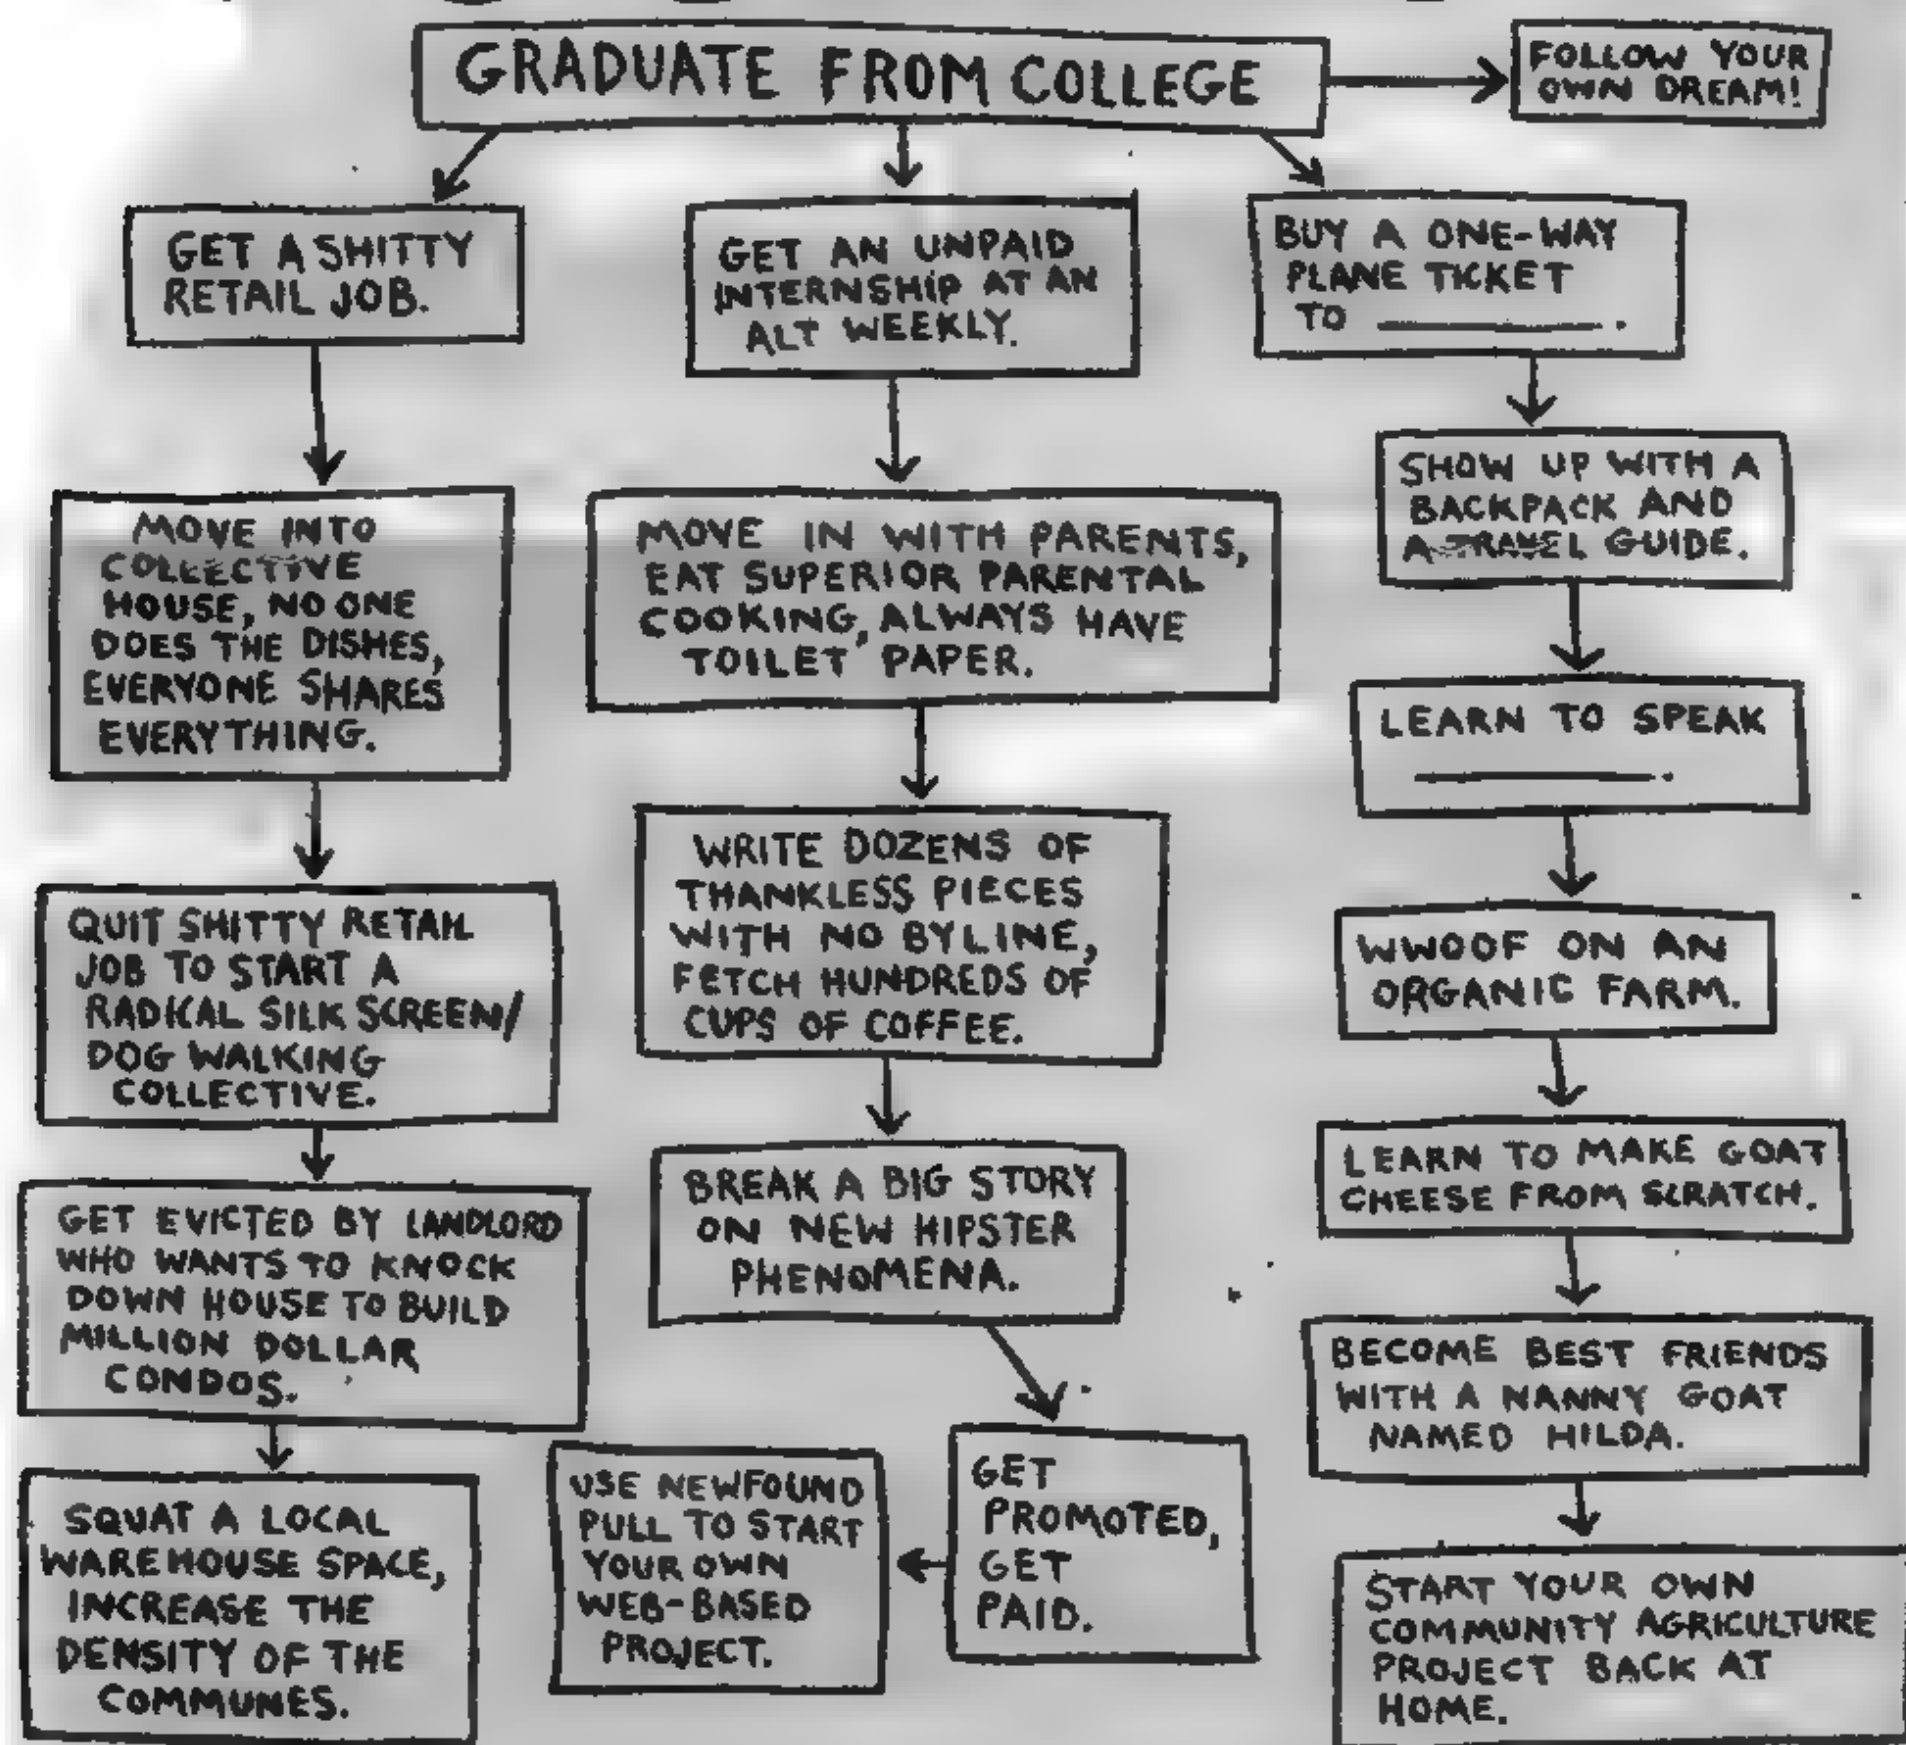 GRADUATE FROM COLLEGE
FOLLOW YOUR
OWN DREAM!
GET A SHITTY
RETAIL JOB.
MOVE INTO
COLLECTIVE
HOUSE, NO ONE
DOES THE DISHES,
EVERYONE SHARES
EVERYTHING.
QUIT SHITTY RETAIL
JOB TO START A
RADICAL SILK SCREEN/
DOG WALKING
COLLECTIVE.
GET EVICTED BY LANDLORD
WHO WANTS TO KNOCK
DOWN HOUSE TO BUILD
MILLION DOLLAR
CONDOS.
SQUAT A LOCAL
WAREHOUSE SPACE,
INCREASE THE
DENSITY OF THE
COMMUNES.
GET AN UNPAID
INTERNSHIP AT AN
ALT WEEKLY.
MOVE IN WITH PARENTS,
EAT SUPERIOR PARENTAL
COOKING, ALWAYS HAVE
TOILET PAPER.
WRITE DOZENS OF
THANKLESS PIECES
WITH NO BYLINE,
FETCH HUNDREDS OF
CUPS OF COFFEE.
BREAK A BIG STORY
ON NEW HIPSTER
PHENOMENA.
GET
PROMOTED,
GET
PAID.
USE NEWFOUND
PULL TO START
YOUR OWN
WEB-BASED
PROJECT.
BUY A ONE-WAY
PLANE TICKET
TO ________.
SHOW UP WITH A
BACKPACK AND
A TRAVEL GUIDE.
LEARN TO SPEAK
________.
WWOOF ON AN
ORGANIC FARM.
LEARN TO MAKE GOAT
CHEESE FROM SCRATCH.
BECOME BEST FRIENDS
WITH A NANNY GOAT
NAMED HILDA.
START YOUR OWN
COMMUNITY AGRICULTURE
PROJECT BACK AT
HOME.